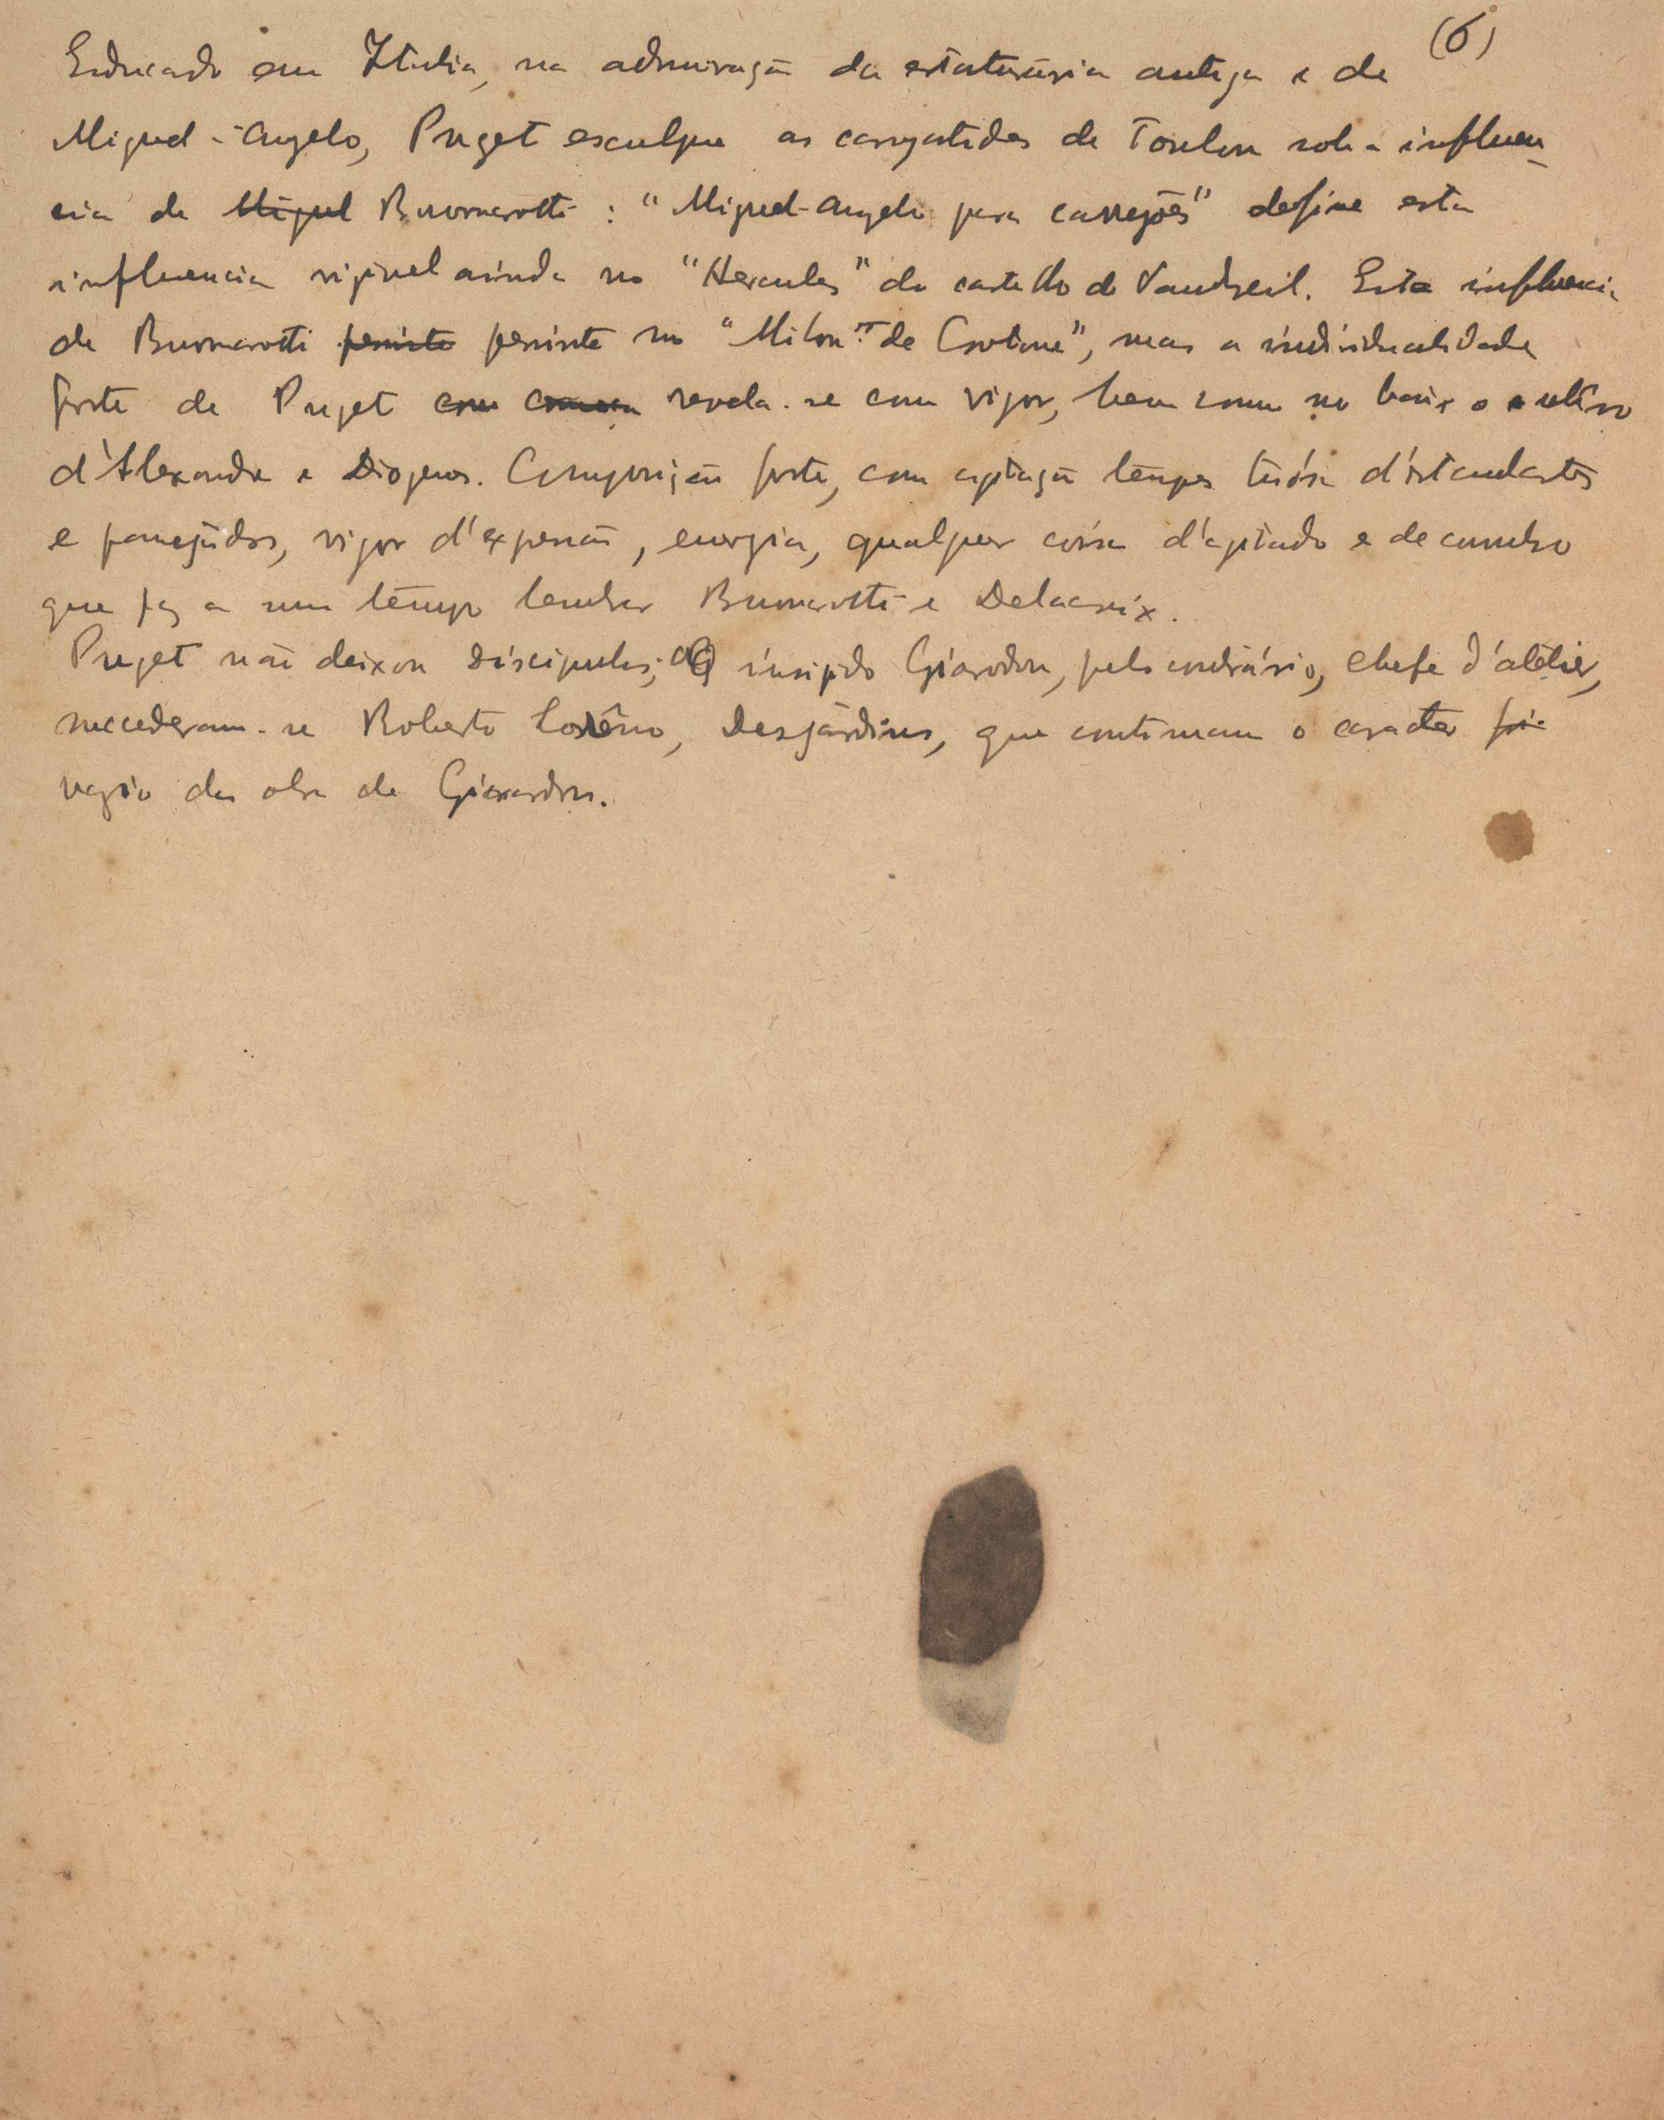 (6)
Educado em Italia, na admiração da estatuária antiga e de
Miguel-Angelo, Puget esculpe as caryatides de Toulon sob a influen-
cia de Miguel Buonarotti : "Miguel-Angelo para carrejões" define esta
influencia visivel ainda no "Hercules" do castello de Vaudreil. Esta influencia
de Buonarotti persiste persiste no "Milon de Crotone", mas a individualidade
forte de Puget com revela-se com vigor, bem como no baixo relêvo
d'Alexandre e Diogenes. Composição forte, com agitação d'estandartes
e panejados, vigor d'expressão, energia, qualquer coisa d'agitado e de
que faz a um tempo lembrar Buonarotti e Delacroix.
Puget não deixou discipulos; ao insipido Girardon, pelo contrário, chefe d'atelier,
succederam-se Roberto Desjardins, que continuam o caracter frio
vazio da obra de Girardon.